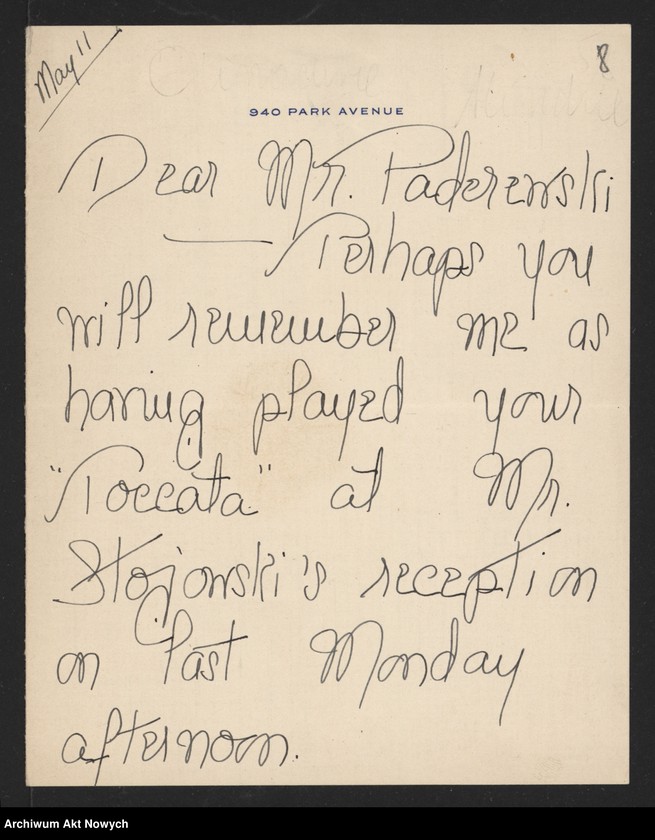 May 11
8
940 PARK AVENUE
Dear Mr. Paderewski
— Perhaps you
will remember me as
having played your
"Toccata" at Mr.
Stojowski's reception
on last Monday
afternoon.
Archiwum Akt Nowych